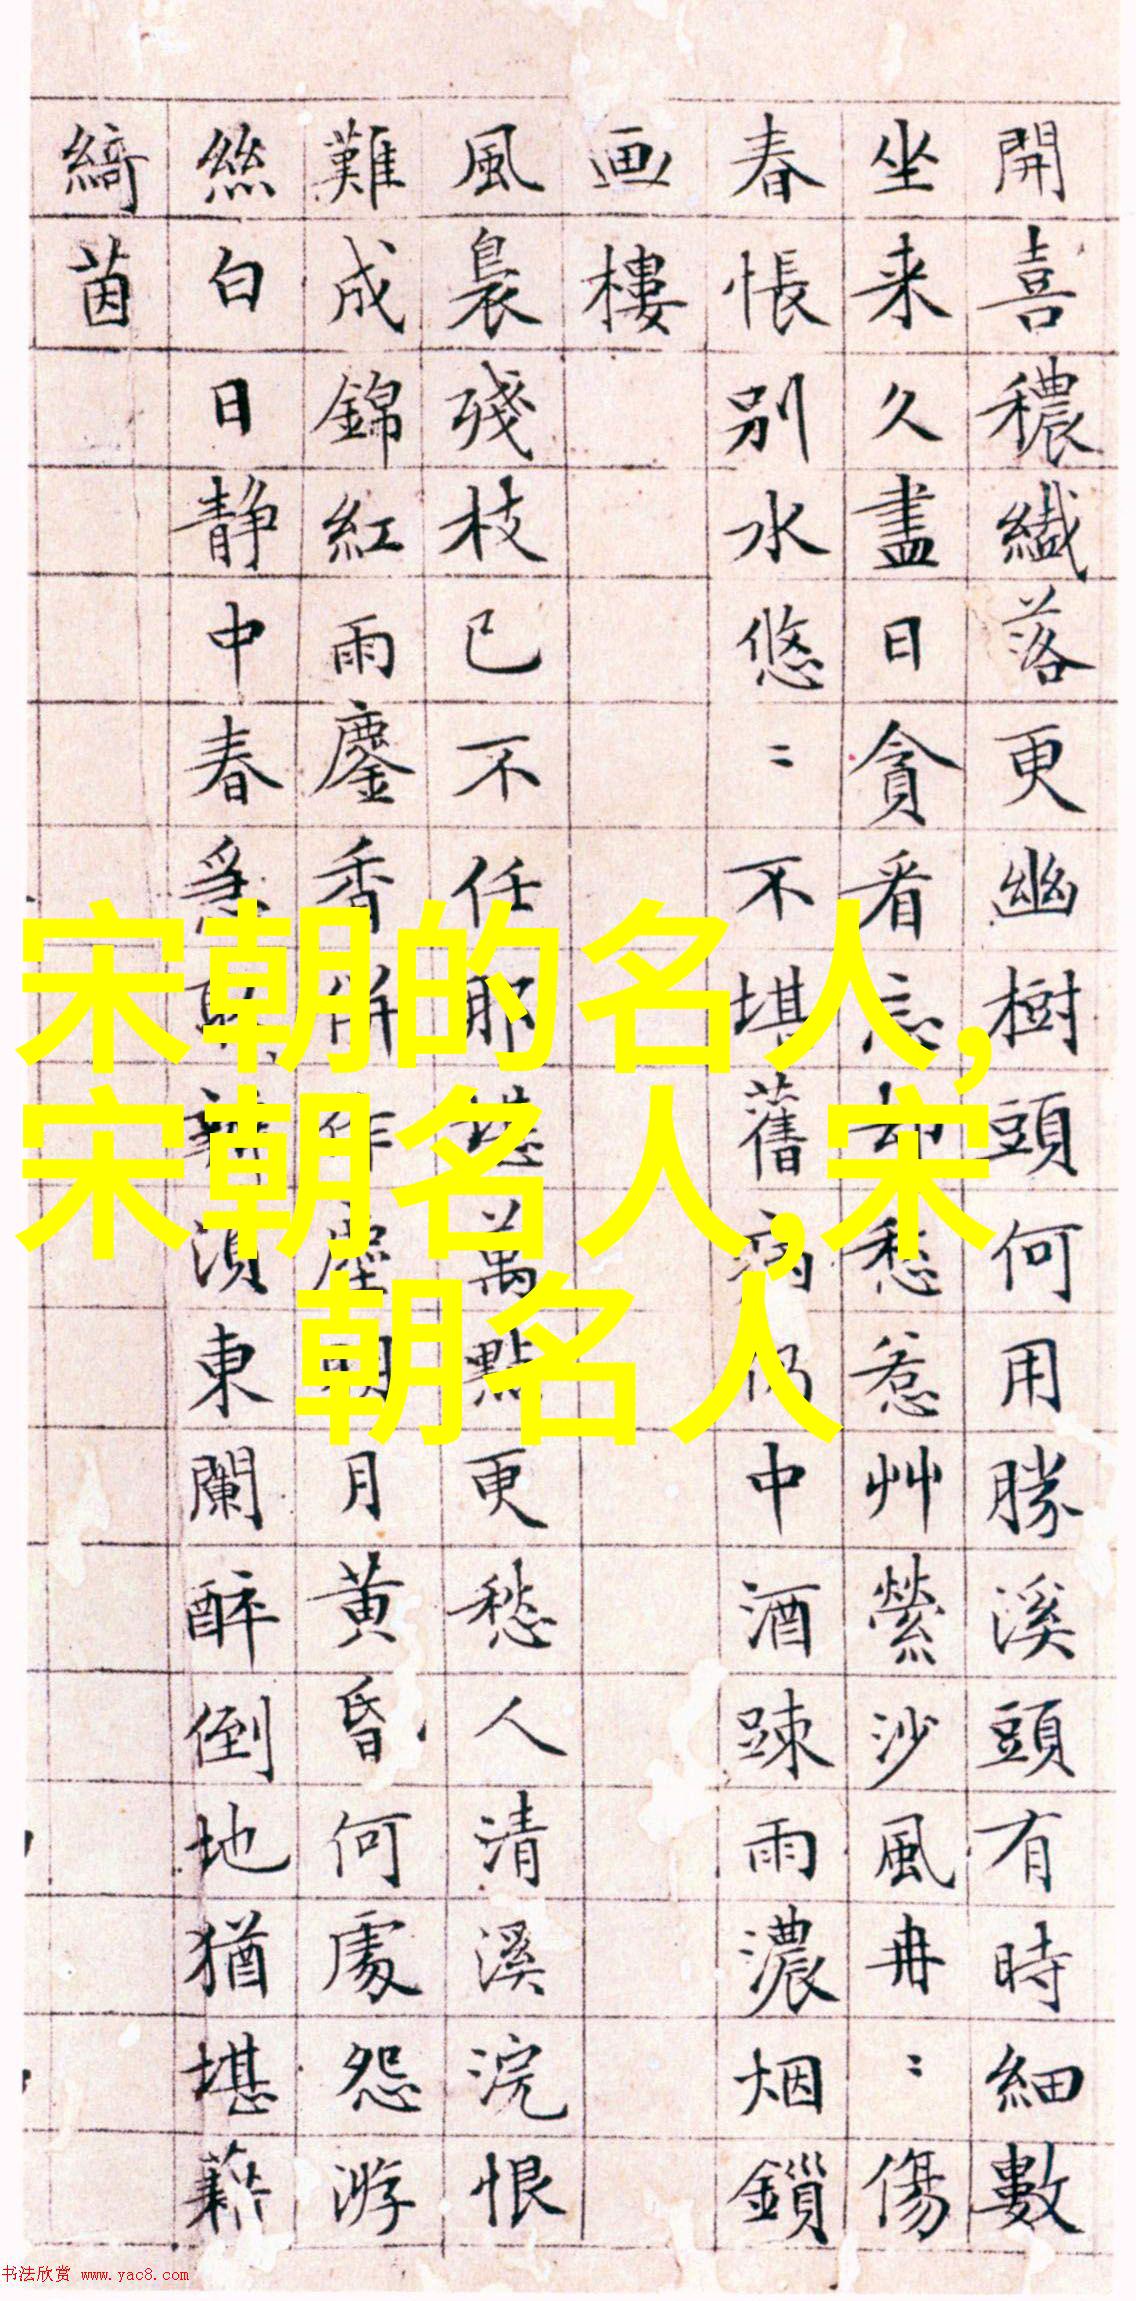 開喜穠纖落更幽樹頭何用勝溪頭有時細數
坐来久盡日貪看忘却愁惹艸縈沙風冉〻傷
春悵別水悠〻不堪舊病仍中酒踈雨濃烟鎖
画樓
風裊殘枝已不任那堪萬點更愁人清溪浣恨
難成錦紅雨鏖香併作塵明月黄昏何處怨游
絲白日静中春須東闌醉倒地猶堪藉
綺茵
宋朝的名人,
宋朝名人,宋
朝名人
书法欣赏 www.yac8.com